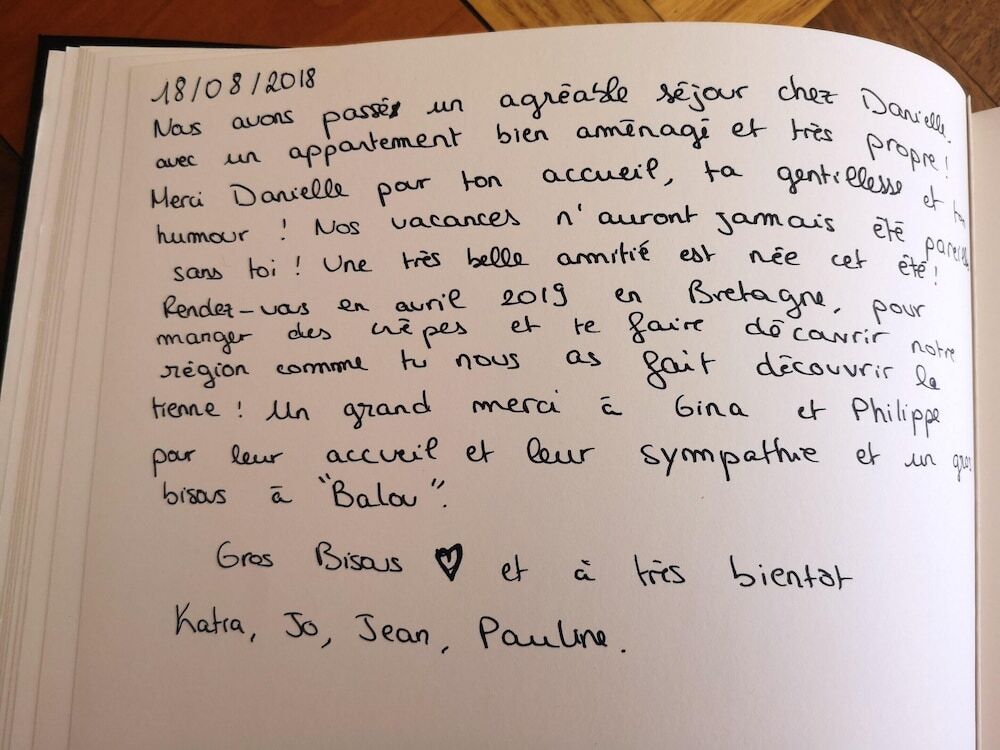 18/08/2018
Nous avons passé un agréable séjour chez Danielle,
avec un appartement bien aménagé et très propre !
Merci Danielle pour ton accueil, ta gentillesse et ton
humour ! Nos vacances n'auront jamais été pareilles
sans toi ! Une très belle amitié est née cet été !
Rendez-vous en avril 2019 en Bretagne, pour
manger des crêpes et te faire découvrir notre
région comme tu nous as fait découvrir la
tienne ! Un grand merci à Gina et Philippe
pour leur accueil et leur sympathie et un gros
bisous à "Balou".
Gros Bisous ♥ et à très bientôt
Katia, Jo, Jean, Pauline.